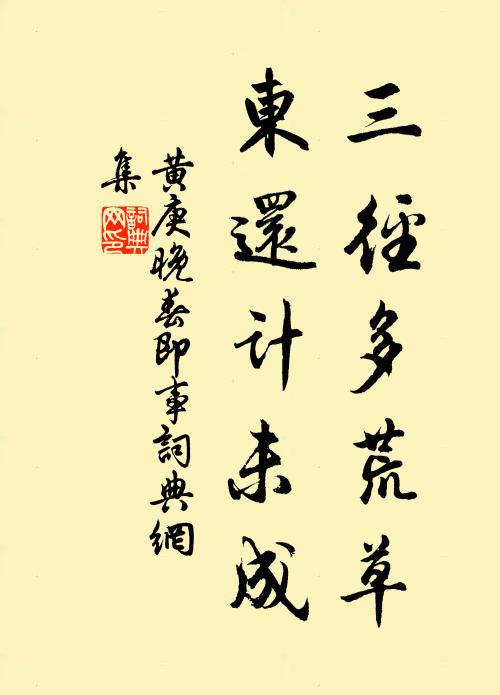 三徑多荒草
東還计未成
黄庚晚春即事詞典網
集
詞典
网印